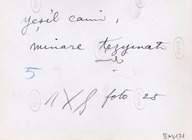 yeşil cami,
minare tezyinatı
5
1 X 8 foto 28